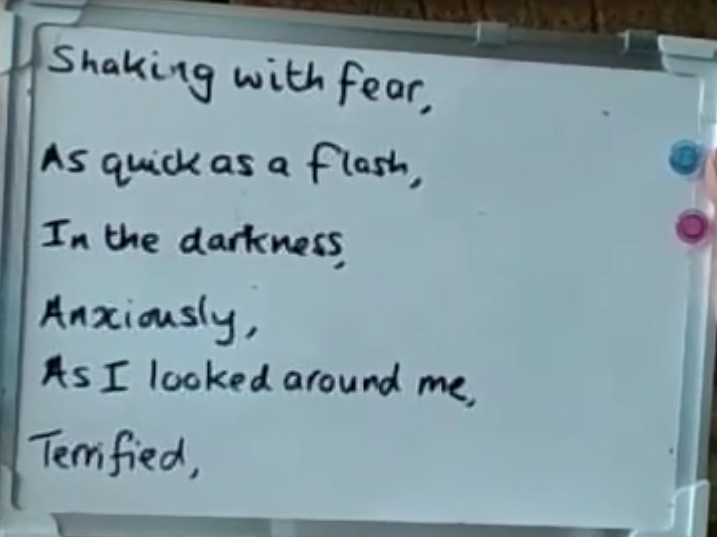 Shaking with fear,
As quick as a flash,
In the darkness,
Anxiously,
As I looked around me,
Terrified,